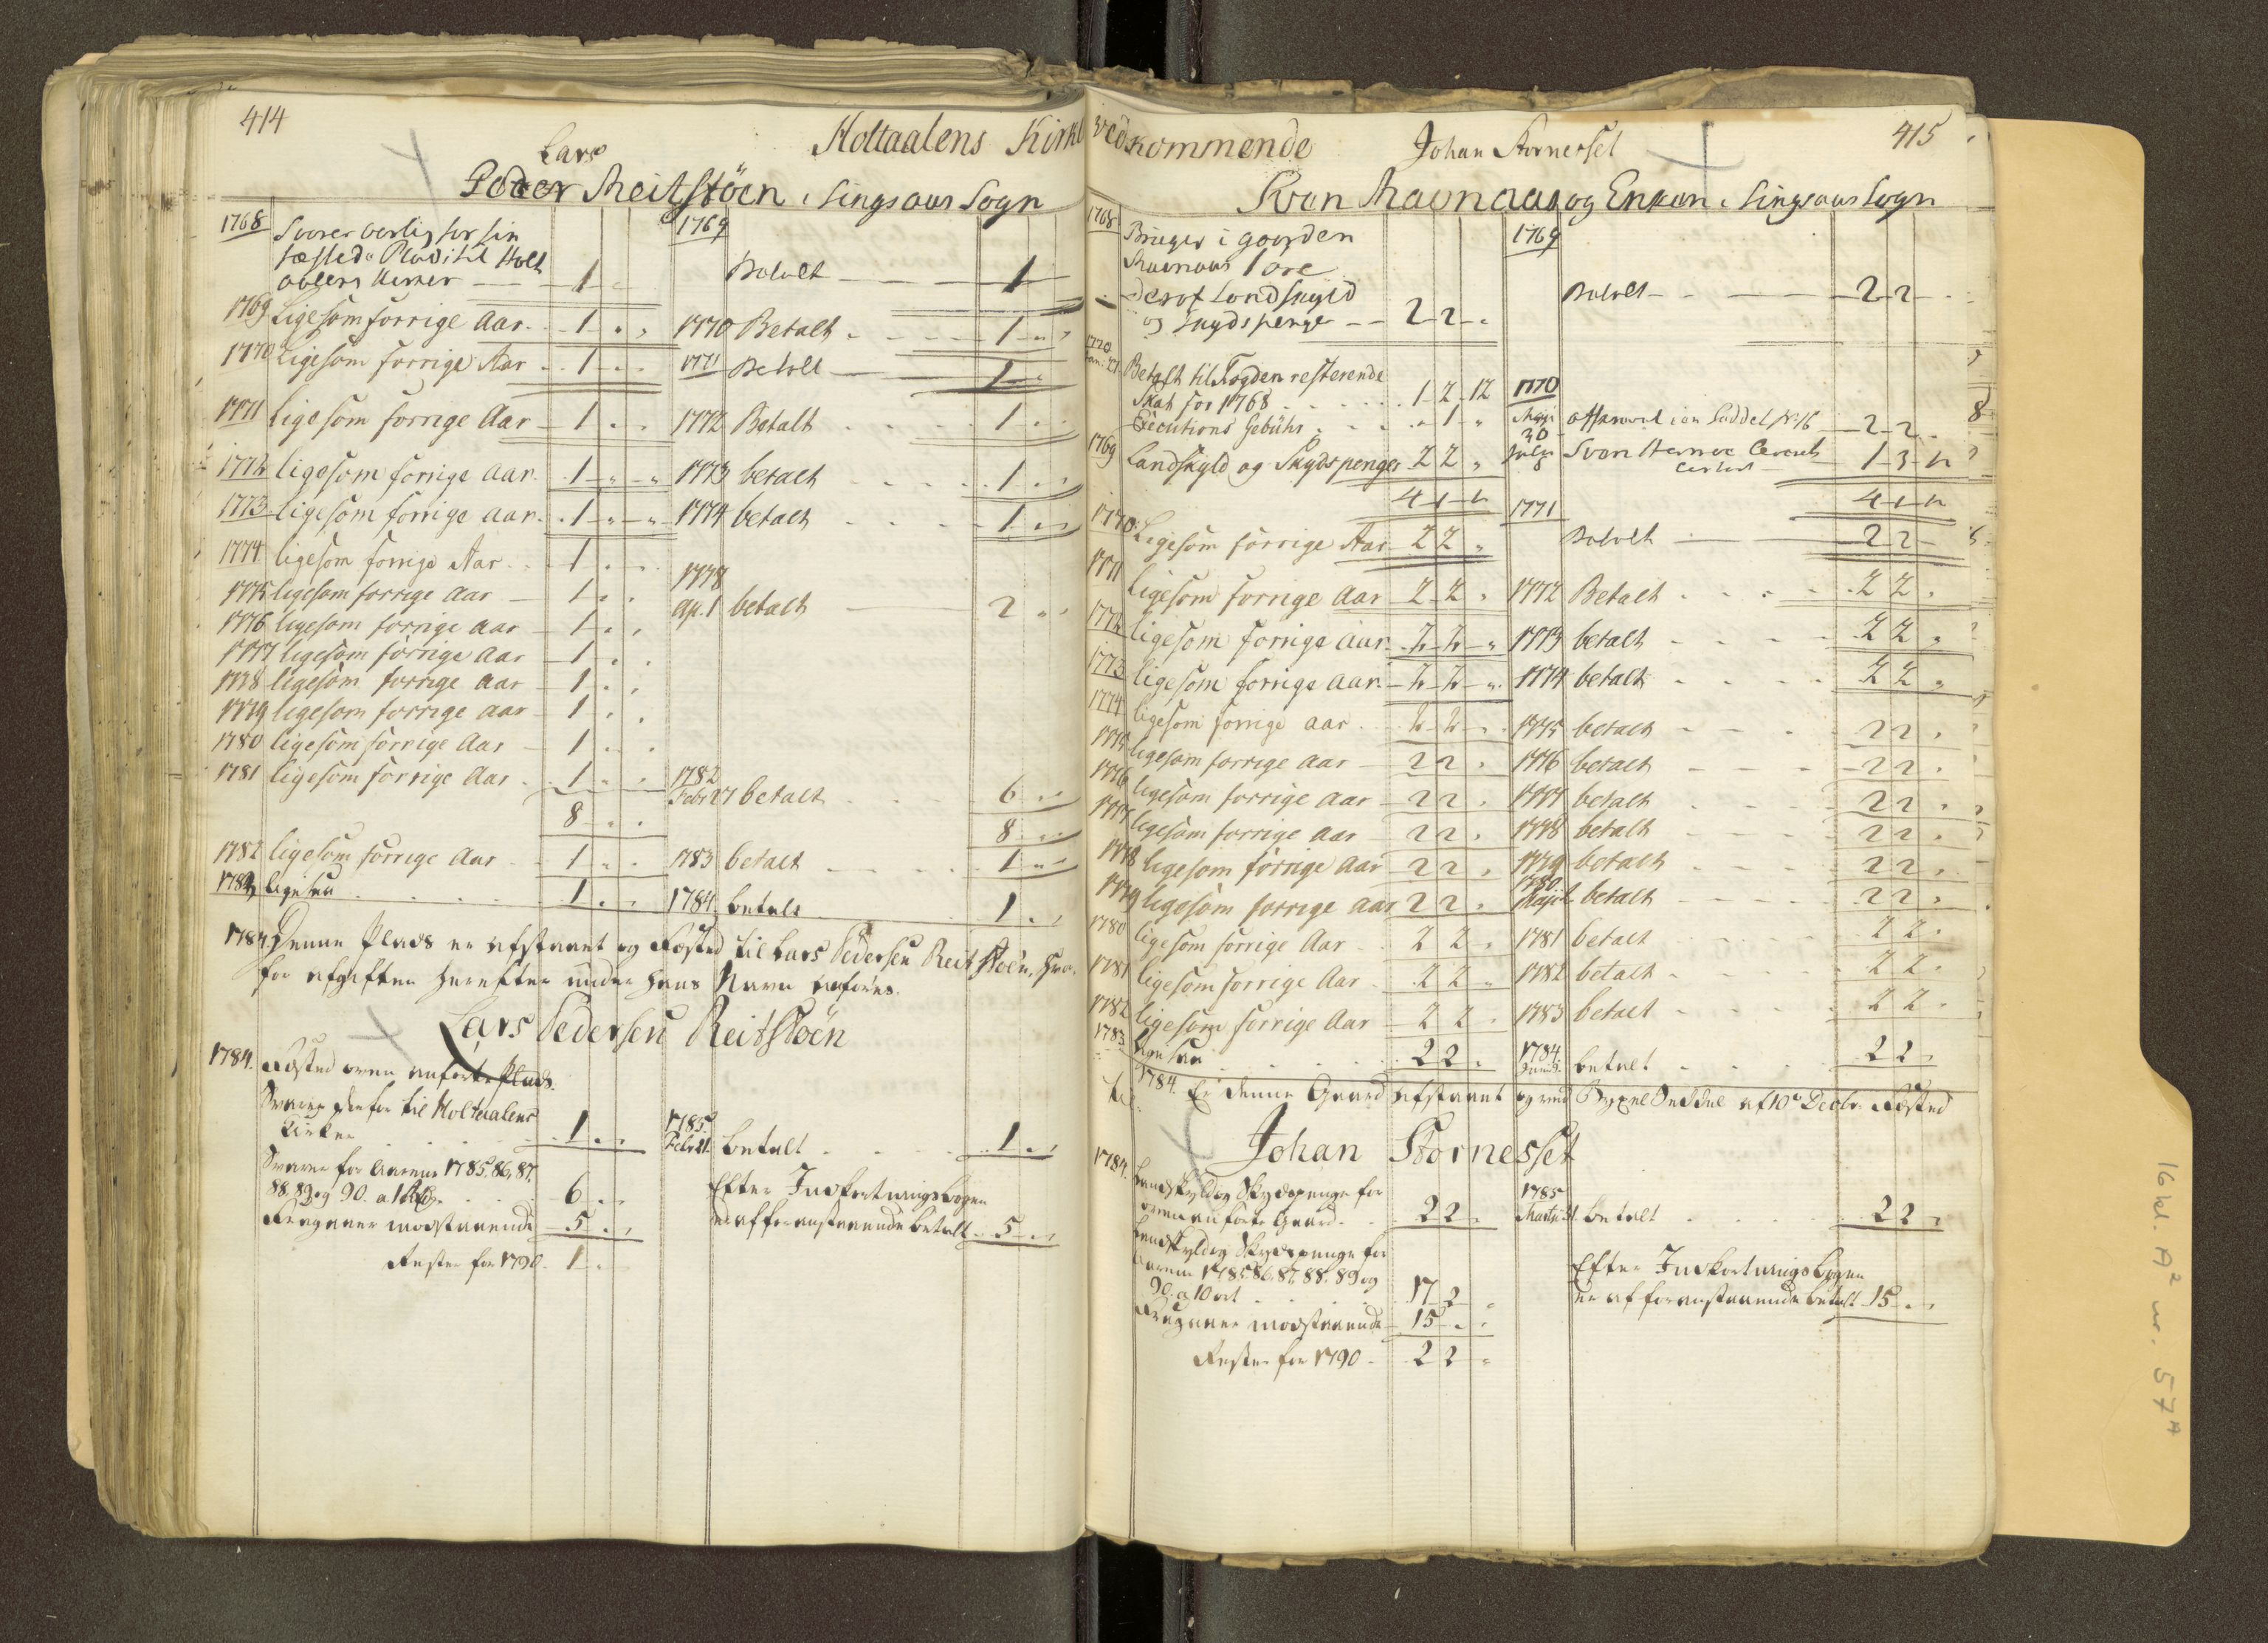 414
Holtaalens Kirke
Lars
Peder Reitstöen i Singsaas Sogn
1768 Svarer aarlig for sin
fæsted Plads til Holt
aalens Kirke 1
1769 Betalt 1
1769 Ligesom forrige Aar 1 1770 Betalt 1
1770 Ligesom forrige Aar 1 1771 Betalt 1
1771 Ligesom forrige Aar 1 1772 Betalt 1
1772 ligesom forrige Aar 1 1773 betalt 1
1773 ligesom forrige aar 1 1774 betalt 1
1774 ligesom forrige Aar 1
1775 ligesom forrige aar 1 1778
1776 ligesom forrige aar 1 Ap. 1 betalt 2
1777 ligesom forrige aar 1
1778 ligesom forrige aar 1
1779 ligesom forrige aar 1
1780 ligesom forrige Aar 1
1781 ligesom forrige Aar 1 1782 Febr 27 betalt 6
8 8
1782 ligesom forrige Aar 1 1783 betalt 1
1783 ligesaa 1 1784 betalt 1
1784. Denne Plads er afstaaet og Fæsted til Lars Pedersen Reitstoen, hvor
for afgiften herefter under hans Navn anføres.
Lars Pedersen Reitstöen
1784. Fæsted oven anførte Plads.
Svarer derfor til Holtaalens
Kirke 1 1785. Febr 21. betalt 1
Svarer for Aarene 1785. 86, 87,
88. 89 og 90. a 1 6
Efter Indkortningsbogen
Fragaaer modstaaende 5 er af foranstaaende betalt 5
Rester for 1790. 1
415
vedkommende
Johan Stornesset
Sven Ravnaas og Enken i Singsaas Sogn
1768 Bruger i gaarden
Ravnaas 1 øre
deraf Landskyld
og Skydspenge 2 2
1769 Betalt 2 2
1770 Betalt til Fogden resterende
Skat for 1768 1 2 12
Executions Gebuhr 1
1769 Landskyld og Skydspenge 2 2
4 1 12
1770
1771
4 1 12
1770 Ligesom forrige Aar 2 2 Betalt 2 2
1771 ligesom forrige Aar 2 2 1772 Betalt 2 2
1772 ligesom forrige aar 2 2 1773 betalt 2 2
1773 ligesom forrige aar 2 2 1774 betalt 2 2
1774 ligesom forrige aar 2 2 1775 betalt 2 2
1775 ligesom forrige aar 2 2 1776 betalt 2 2
1776 ligesom forrige aar 2 2 1777 betalt 2 2
1777 ligesom forrige aar 2 2 1778 betalt 2 2
1778 ligesom forrige aar 2 2 1779 betalt 2 2
1779 ligesom forrige aar 2 2 1780 betalt 2 2
1780 ligesom forrige Aar 2 2 1781 betalt 2 2
1781 ligesom forrige Aar 2 2 1782 betalt 2 2
1782 ligesom forrige Aar 2 2 1783 betalt 2 2
1783 ligesaa 2 2 1784. betalt 2 2
1784. Er denne Gaard afstaaet og ved Byxel Seddel af 10de Decbr. Fæsted
til
Johan Stornesset
1784. Landskyld og Skydspenge for
oven anførte Gaard 2 2 1785 Martii 31. betalt 2 2
Landskyld og Skydspenge for
Aarene 1785. 86, 87, 88. 89 og
90. a 10 ort 17 2
Efter Indkortningsbogen
er af foranstaaende betalt 15
Fragaaer modstaaende 15
Rester for 1790 2 2
16 kl. A² nr. 57 A